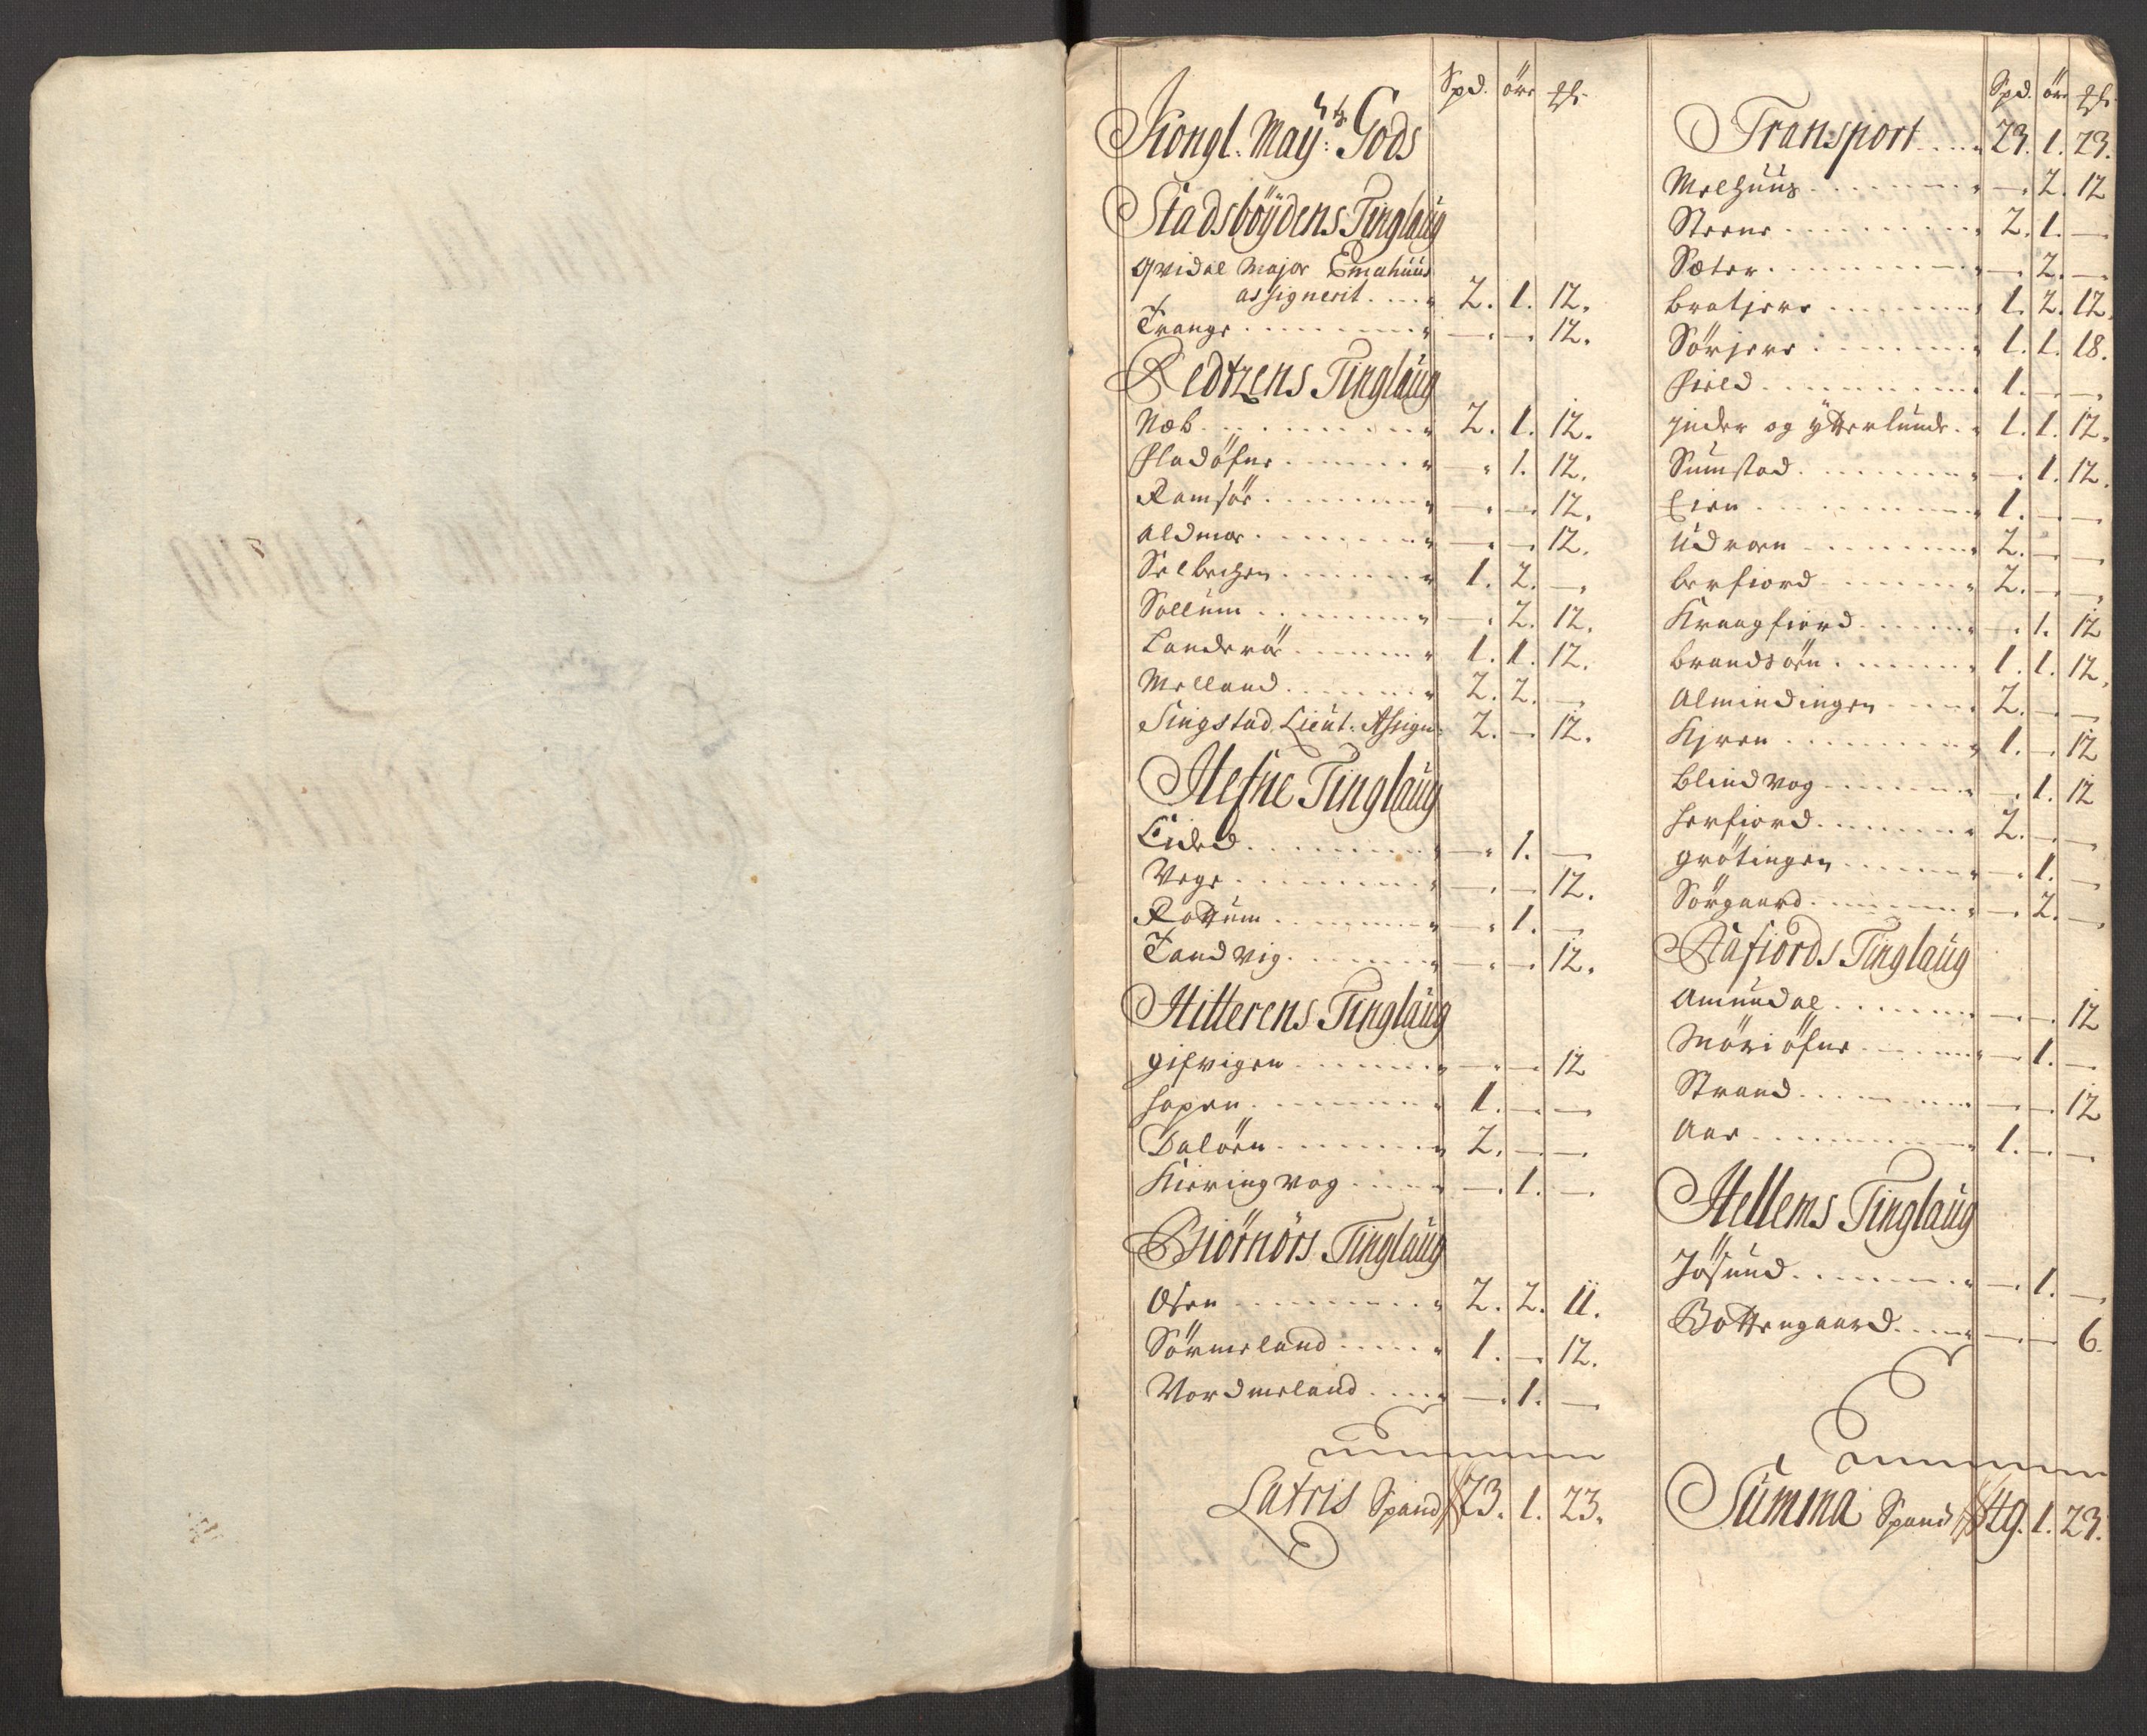 Spd. öre
Kongl. May:tz Gods
Stadsböydens Tinglaug
Qvidal Major Emahuus
assignerit . . . . 2. 1. 12.
Trange . . . . — — 12.
Redtzens Tinglaug
Næb . . . . 2. 1. 12.
Fladöfne . . . . — 1. 12.
Ramsöe . . . . — — 12.
Aldmoe . . . . — — 12.
Selbechen . . . . 1. 2. —
Sollum . . . . — 2. 12.
Landeröe . . . . 1. 1. 12.
Melland . . . . 2. 2. —
Singstad Lieut. Assign: 2. — 12.
Hefne Tinglaug
Eided . . . . — 1. —
Vege . . . . — — 12.
Rottum . . . . — 1. —
Tandvig . . . . — — 12.
Hitterens Tinglaug
Gifvigen . . . . — — 12
Hopen . . . . 1. — —
Dalöen . . . . 2. — —
Kieringvog . . . . — 1. —
Biörnörs Tinglaug
Osen . . . . 2. 2. 11.
Sörmeland . . . . 1. — 12.
Nordmeland . . . . — 1. —
Latris Spand 23. 1. 23.
Spd. öre
Transport . . . . 23. 1. 23.
Melhuus . . . . — 2. 12
Steene . . . . 2. 1. —
Sæter . . . . — 2. —
Bratjere . . . . 1. 2. 12.
Sörjere . . . . 1. 1. 18.
Field . . . . 1. — —
Inder og ytterlunde . . 1. 1. 12.
Sumstad . . . . — 1. 12.
Eien . . . . 1. — —
Udvoen . . . . 2. — —
Berfiord . . . . 2. — —
Kraagfiord . . . . — 1. 12
Brandsöen . . . . 1. 1. 12.
Almindingen . . . . 2. — —
Kjren . . . . 1. — 12
Blindvog . . . . — 1. 12
Herfiord . . . . 2. — —
Grötingen . . . . — 1. —
Sörgaard . . . . — 2. —
Aafiords Tinglaug
Amundal . . . . — — 12
Möriöfne . . . . — 1. —
Strand . . . . — — 12
Aae . . . . 1. — —
Hellems Tinglaug
Jösund . . . . — 1. —
Bottengaard . . . . — — 6.
Summa Spand 49. 1. 23.